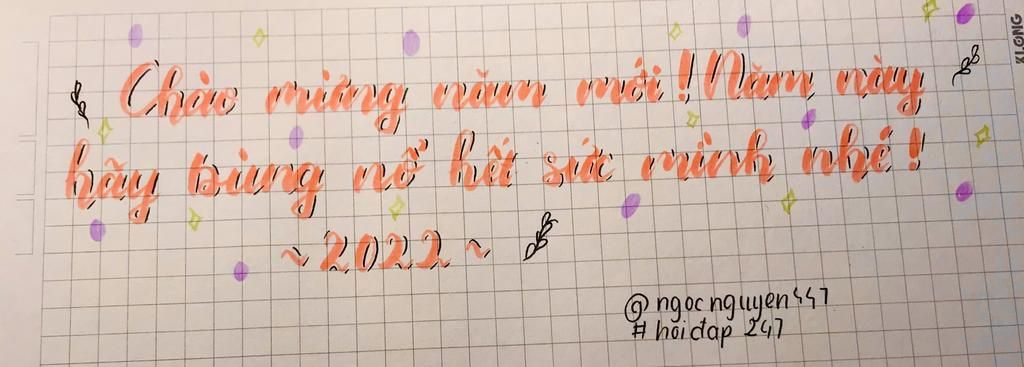 Chào mừng năm mới! Năm này
hãy bùng nổ hết sức mình nhé!
~ 2022 ~
@ngocnguyen447
#hỏiđáp 247
KLONG